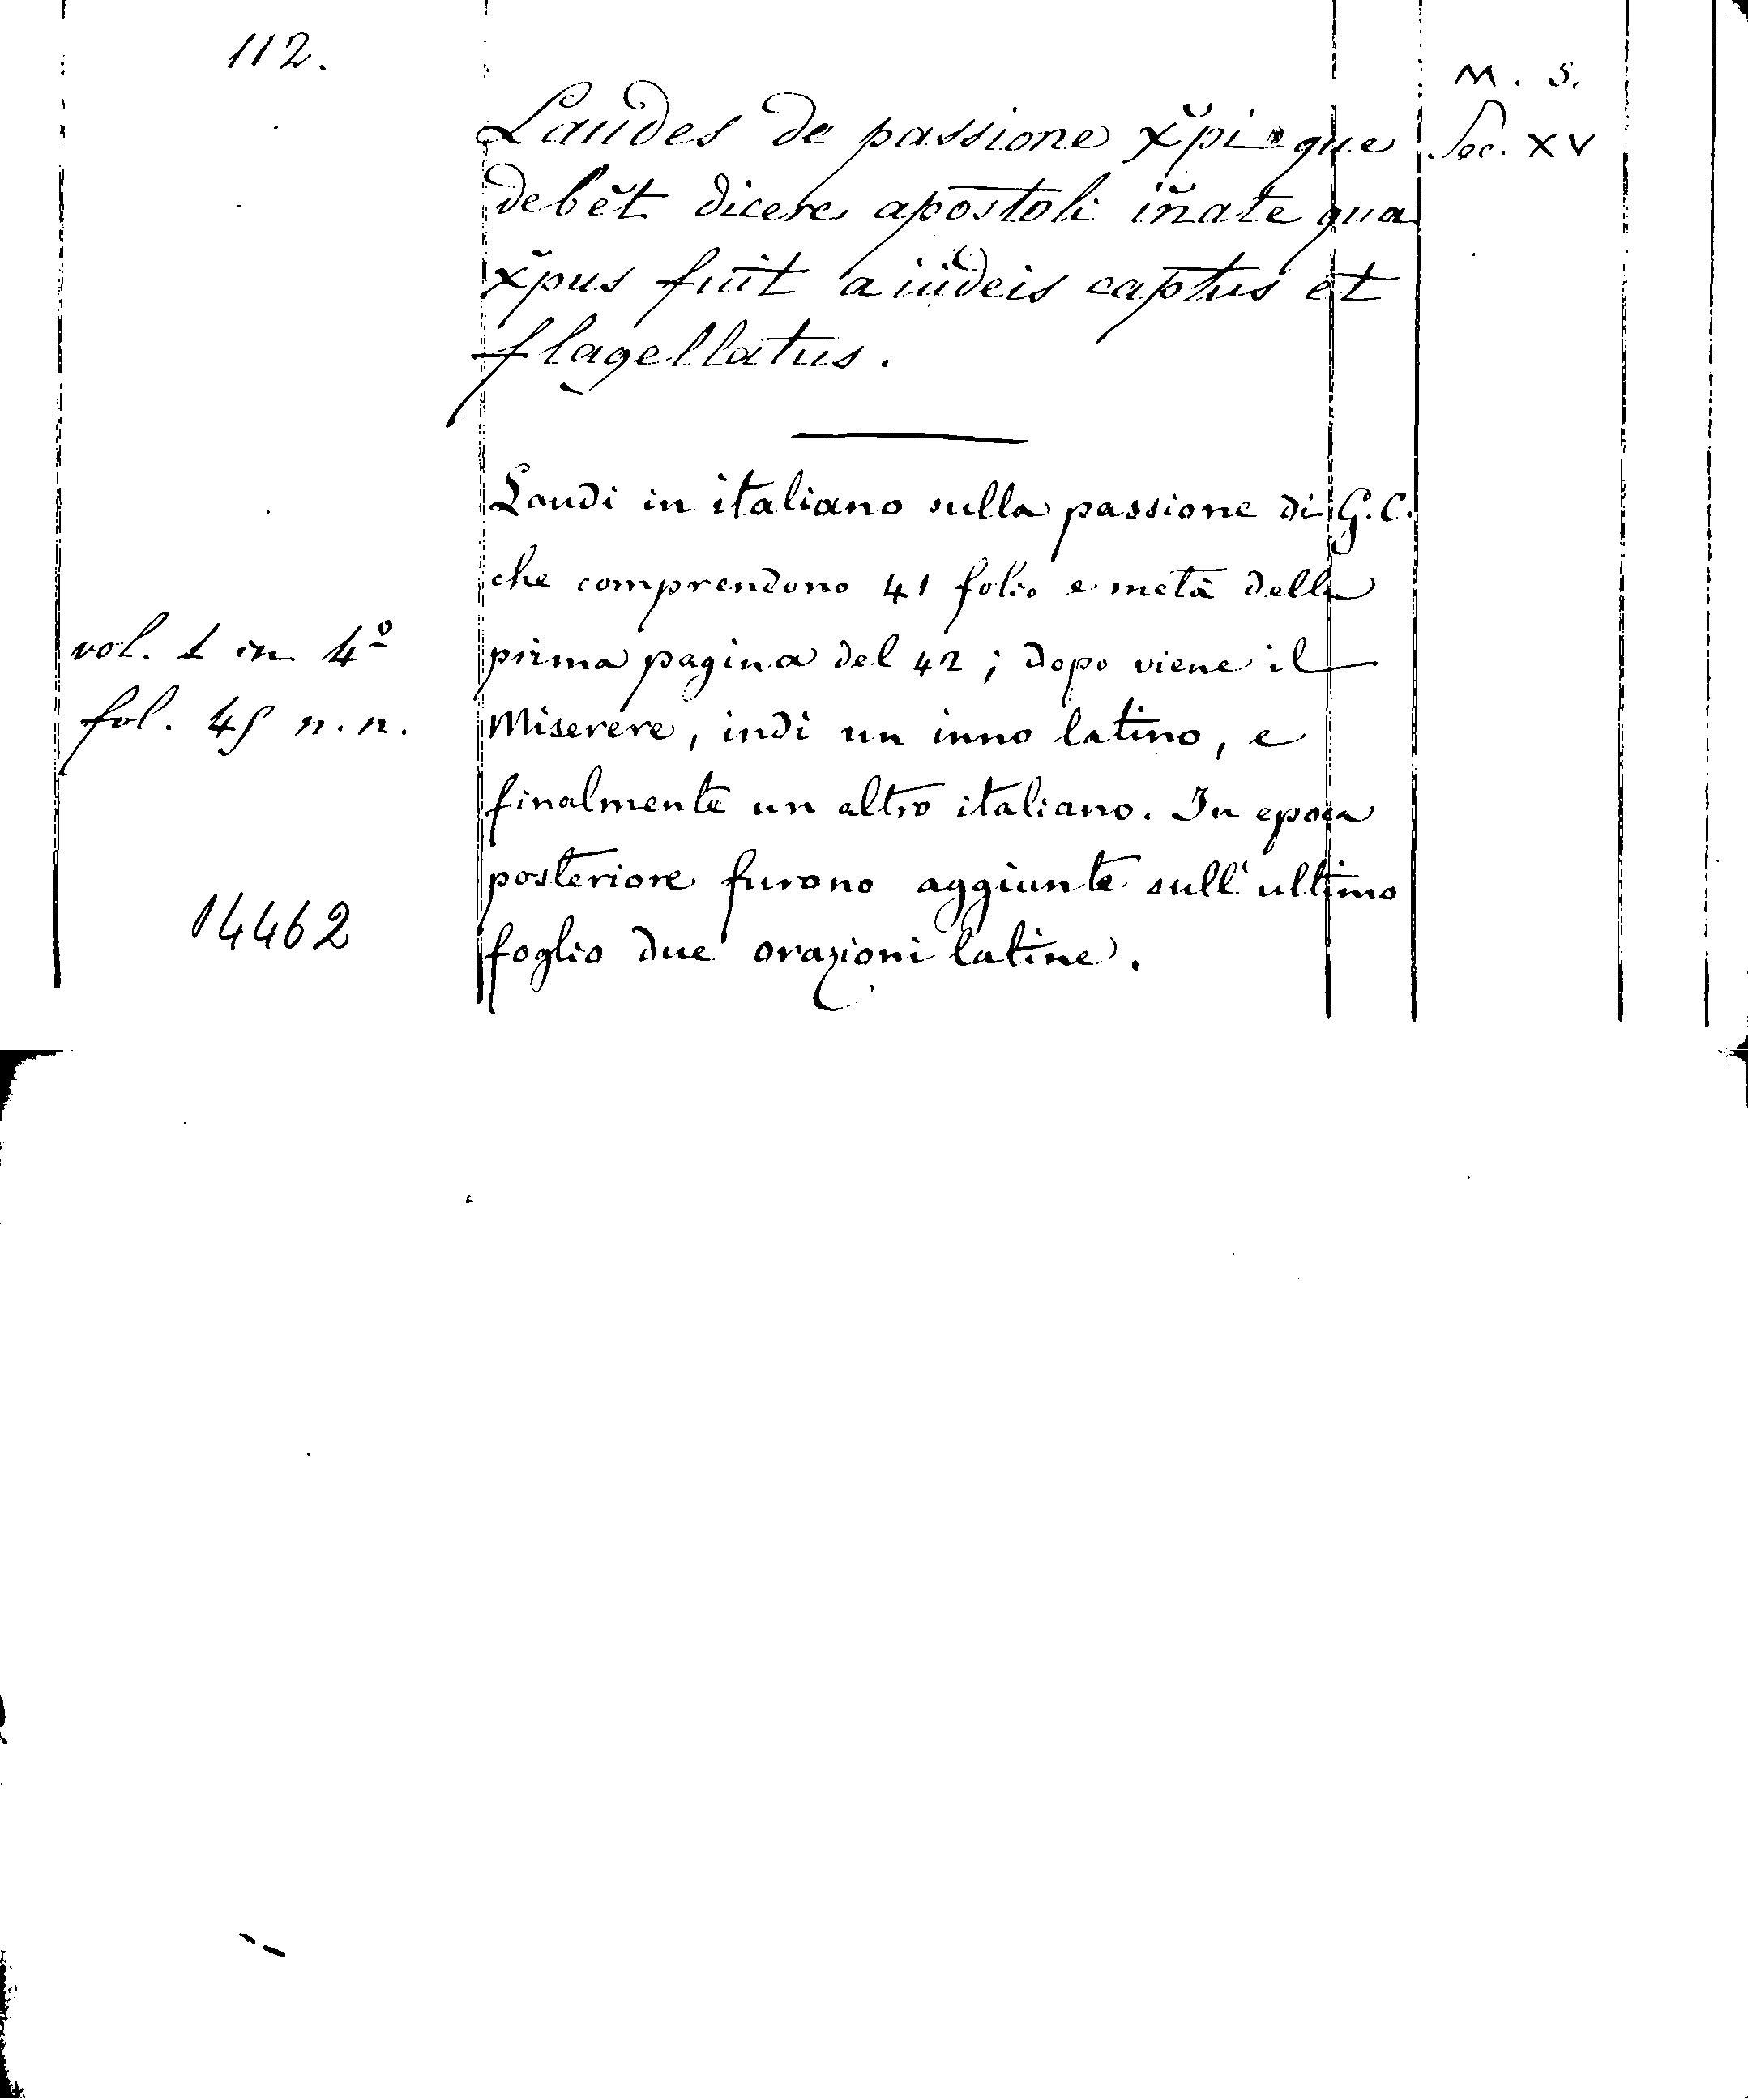 112.
M. S.
Sec. XV
Laudes de passione x̃pi que
debẽt dicere apostoli iñate qua
x̃pus fuit a iudeis captus et
flagellatus.
Laudi in italiano sulla passione di G. C.
che comprendono 41 folio e metà della
pirma pagina del 42; dopo viene il
Miserere, indi un inno latino, e
finalmente un altro italiano. In epoca
posteriore furono aggiunte sull'ultimo
foglio due orazioni latine.
vol. 1 in 4º
fol. 45 n. n.
14462